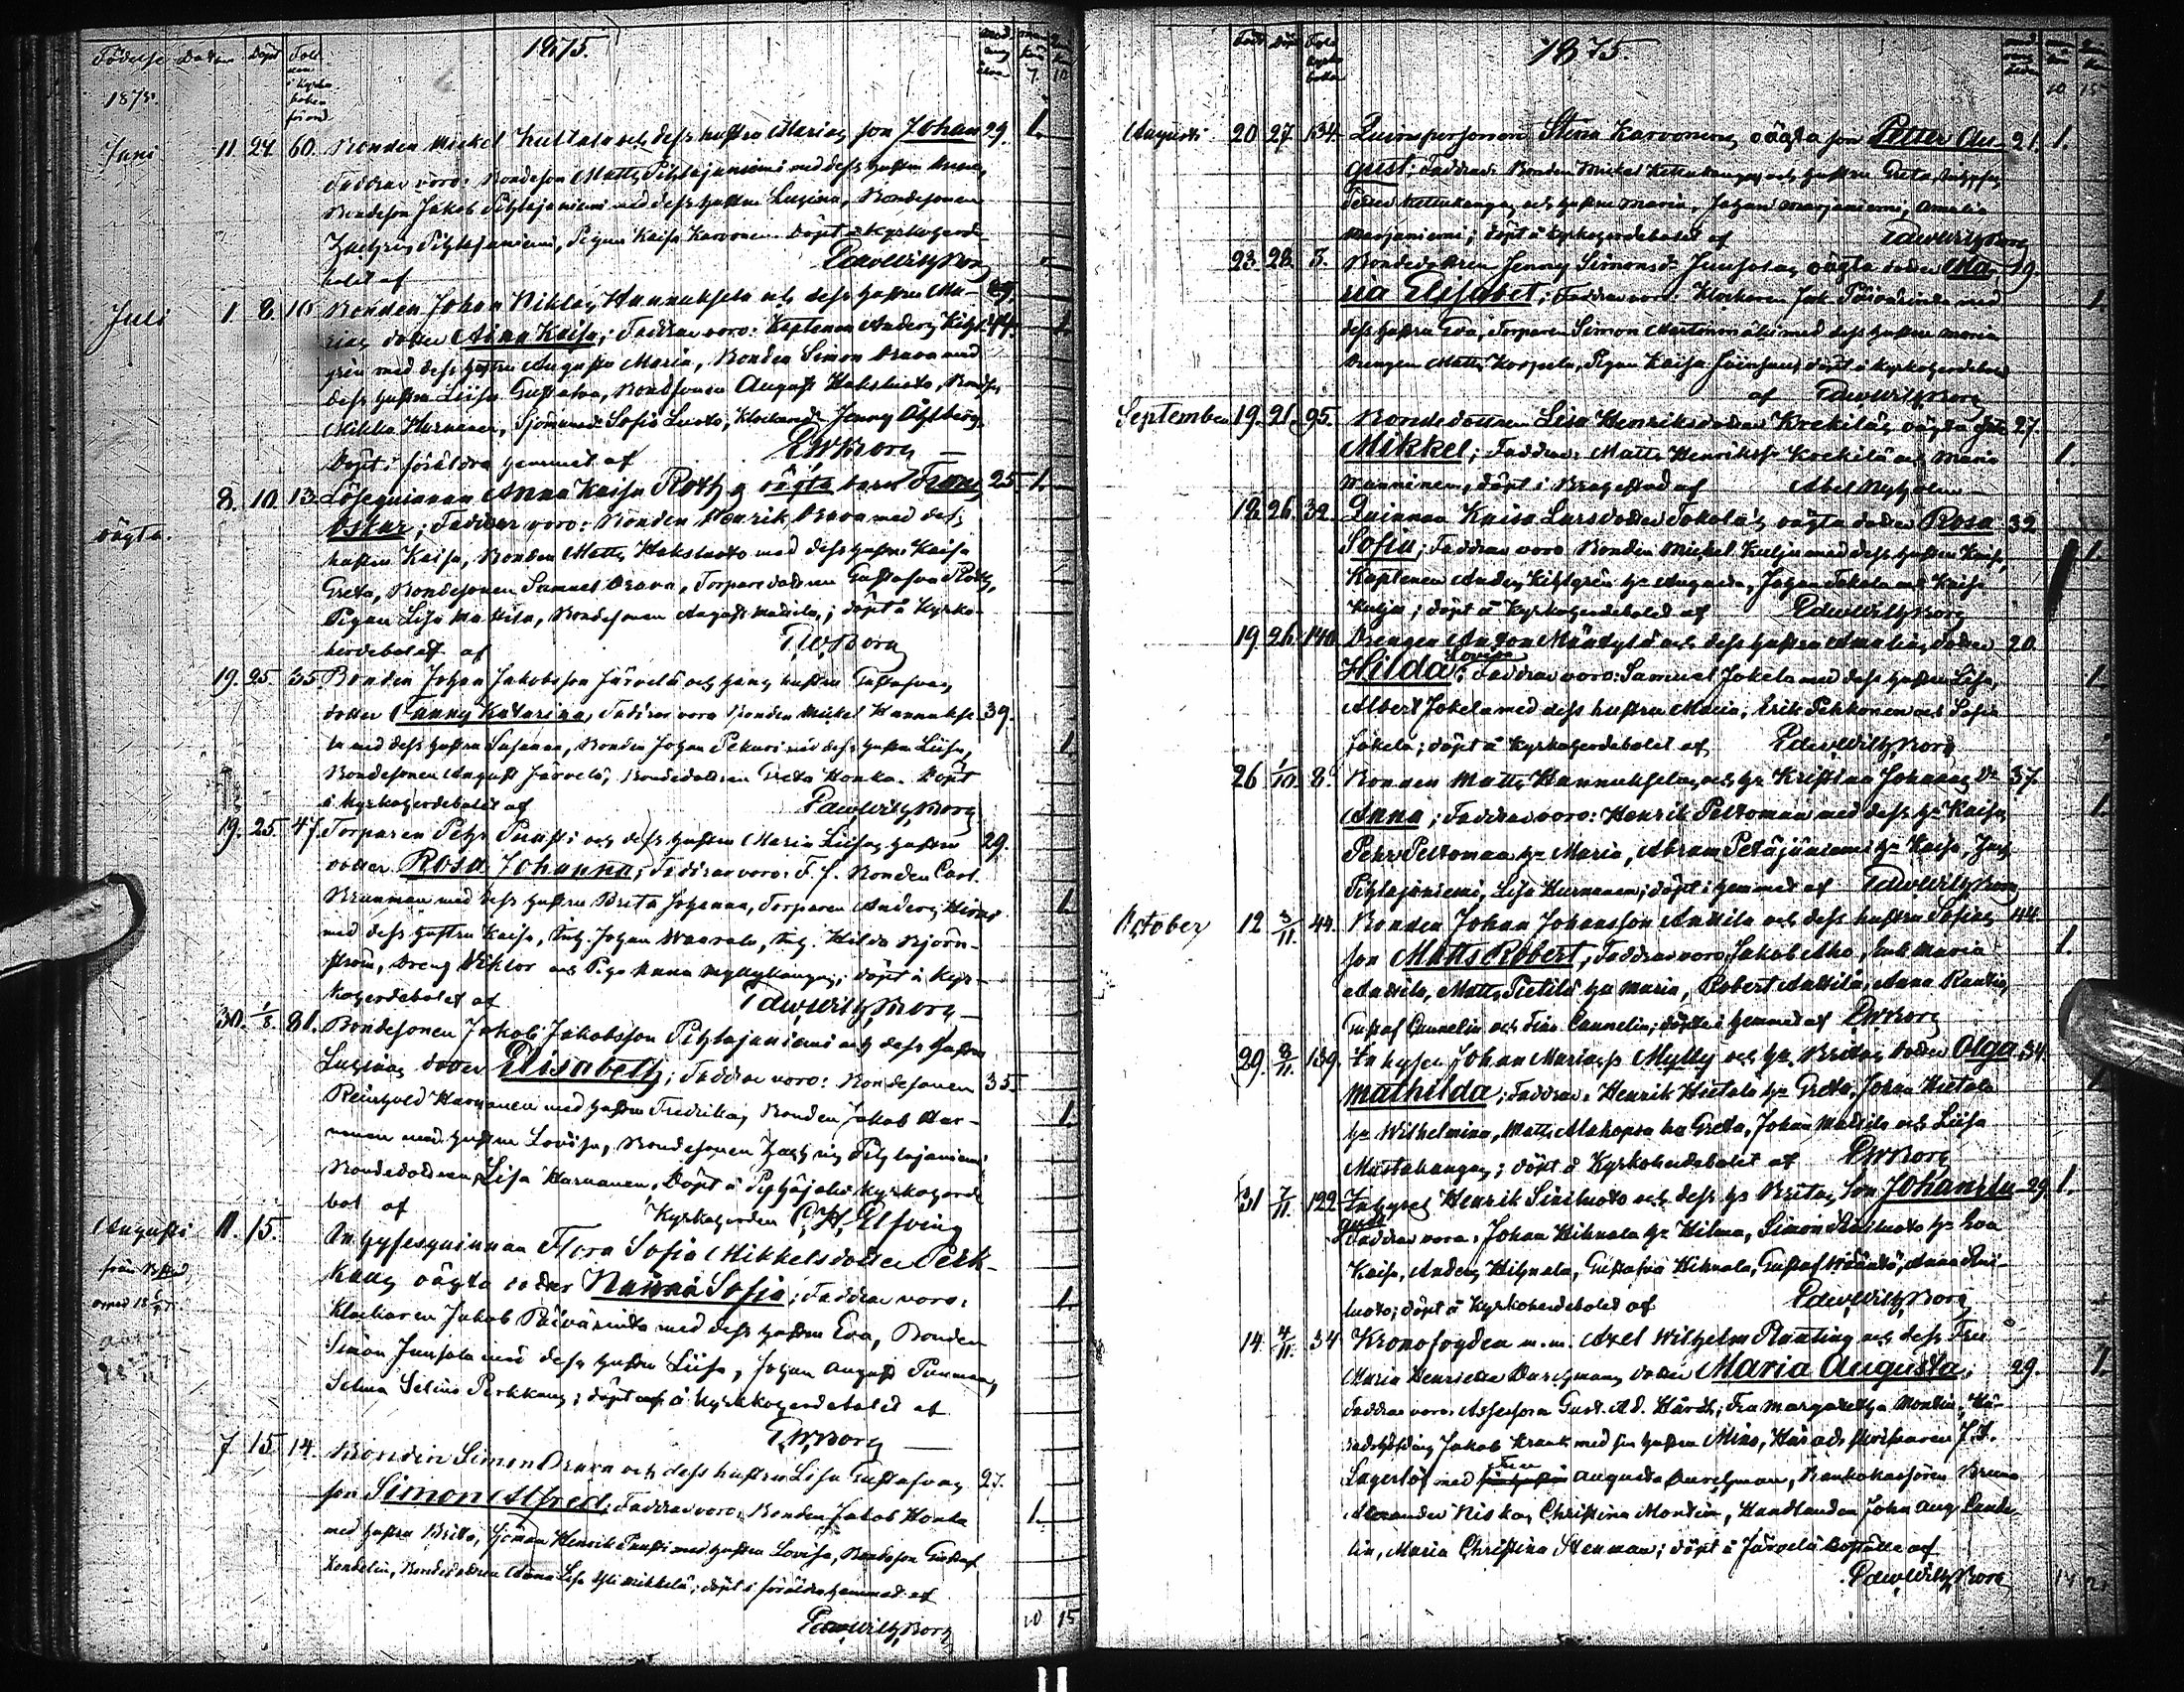 Födelse Datum Döpt Foll
1875.
1875.
Juni 11 24 60. Bonden Mickel Huttala och dess hustru Marias son Johan 29. 1.
Faddrar voro: Bondeson Matts Pihlajaniemi med dess hustru Anna,
Bondeson Jakob Pihlajaniemi med dess hustru Lusina, Bondesonen
Zachris Pihlajaniemi, Pigan Kaisa Karvonen. Döpt å Kyrkoherde
bolet af Edw Wilh Borg
Juli 1 8 10 Bonden Johan Niklas Hannuksela och dess hustru Ma-
rias dotter Aina Kaisa; Faddrar voro: Kaptenen Anders Kihl 44. 1.
gren med dess hustru Augusta Maria, Bonden Simon Orava med
dess hustru Liisa Gustafva, Bondsonen August Hakoluoto, Bonds
Mikko Hurnanen, Sjömand. Sofia Luoto, Klockard. Jenny Östberg
Döpt i föräldra hemmet af EWBorg
8. 10. 13. Lösequinnan Anna Kaisa Roth's oägta barn Frans 25. 1.
oägta. Oskar; Faddrar voro: Bonden Henrik Orava med dess
hustru Kaisa, Bonden Matts Hakoluoto med dess hustru Kaisa
Greta, Bondesonen Samuel Orava, Torparedottren Gustafva Roth,
Pigan Lisa Mattila, Bondesonen August Mattila; döpt å Kyrko-
herdebolet af E.W.Borg
19. 25. 35. Bonden Johan Jakobsson Järvelä och hans hustru Gustafvas
dotter Fanny Katarina, Faddrar voro Bonden Mickel Hannukse- 39.
la med dess hustru Susanna, Bonden Johan Pekuri med dess hustru Liisa, 1.
Bondesonen August Järvelä, Bondedottren Greta Honka. Döpt
å Kyrkoherdebolet af Edw Wilh Borg
19. 25. 47. Torparen Pehr Puusti och dess hustru Maria Liisas hustru 29.
dotter Rosa Johanna; Faddrar voro: F. f. Bonden Carl
Brunman med dess hustru Brita Johanna, Torparen Anders 1.
med dess hustru Kaisa, Ing. Johan Waarala, Ing. Hilda Björn-
ström, Dreng Viktor och Piga Anna Myllykangas; döpt å Kyr-
koherdebolet af Edw Wilh Borg
30. 1/8. 81. Bondesonen Jakob Jakobsson Pihlajaniemi och dess hustru
Lusinas dotter Elisabeth; Faddrar voro: Bondesonen 35.
Reinhold Harnanen med hustru Fredrika, Bonden Jakob Har- 1.
nanen med hustru Lovisa, Bondesonen Zachris Pihlajaniemi
Bondedottren Lisa Harnanen, Döpt å Pyhäjoki Kyrkoherde
bol af Kyrkoherden C. H. Elfving
Augusti 11. 15. Inhysesquinnan Flora Sofia Mikkelsdotter Perk-
kaus oägta dotter Nanna Sofia; Faddrar voro: 1.
Klockaren Jakob Päivärinta med dess hustru Eva, Bonden
Simon Junsola med dess hustru Liisa, Johan August
Selma Selina Perkkaus; döpt å Kyrkkoherdebolet af
E.W.Borg
7 15 14. Bonden Simon Orava och dess hustru Lisa Gustafvas 27.
son Simon Alfred; Faddrar voro: Bonden Jakob Honka 1.
med hustru Brita, Sjöman Henrik Puusti med hustru Lovisa, Bondeson Gustaf
Bondedottren Anna Lisa Yli Mikkelä; döpt i föräldrahemmet af
Edw Wilh Borg 10 15
1875.
10 15
Augusti 20 27. 134. Quinspersonen Stina Karvonens oägta son Petter Au- 21. 1.
gust; Faddrar: Bonden Mickel Kettukangas och hustru Greta,
Petter Kettukangas och hustru Maria, Johan Marjaniemi, Amalia
Marjaniemi; döpt å Kyrkoherdebolet af Edw Wilh Borg
23. 28. 5. Bondedottren Jenny Simonsdr Junsolas oägta dotter Ma- 19.
ria Elisabet; Faddrar voro: Klockaren Jak. Päivärinta med 1.
dess hustru Eva, Torparen Simon Martinmäki med dess hustru Maria
Drengen Matts Korpela, Pigan Kaisa döpt å Kyrkoherdebolet
af Edw Wilh Borg
September 19. 21. 95. Bondedottren Lisa Henriksdotter Krekiläs oägta son 27.
Mikkel; Faddrar: Matts Henriksson Krekilä och Maria 1.
Manninen, döpt i Brahestad af Abel Nyholm
18 26. 32. Quinnan Kaisa Larsdotter Tokola's oägta dotter Rosa 32
Sofia; Faddrar voro Bonden Mickel Kulju med dess hustru Kaisa, 1.
Kaptenen Anders Kihlgren hu Augusta, Johan Tokola och Kaisa
Kulju; döpt å Kyrkoherdebolet af Edw Wilh Borg
19. 26. 140. Drengen Anton Mäntylä och dess hustru Amalias dotter 20.
Hilda Lovisa; Faddrar voro: Samuel Jokela med dess hustru Lisa, 1.
Albert Jokela med dess hustru Maria, Erik Pehkonen och Sofia
Jokela; döpt å Kyrkoherdebolet af Edw Wilh Borg
26 1/10. 8. Bonden Matts Hannukselas och hu Kristina Johannas dr 37.
Anna; Faddrar voro: Henrik Peltomaa med dess hu Kaisa, 1.
Pehr Peltomaa hu Maria, Abram Petäjäniemi hu Kaisa, Zach.
Pihlajaniemi, Lisa Hurnanen; döpt i hemmet af Edw Wilh Borg
October 12 3/11. 44. Bonden Johan Johansson Anttila och dess hustru Sofias 44.
son Matts Robert, Faddrar voro: Jakob Aho, Enk. Maria 1.
Anttila, Matts Pietilä hu Maria, Robert Anttila, Anna Rautio,
Gustaf Cannelin och Fina Cannelin; döpt i hemmet af EWBorg
29. 8/11. 139. Inhyses Johan Mariasp Mylly och hu Britas dotter Olga 34.
Mathilda; Faddrar: Henrik Hietala hu Greta, Johan Hietala 1.
hu Wilhelmina, Matts Alakopsa hu Greta, Johan Mattila och Liisa
Mustakangas; döpt å Kyrkoherdebolet af EWBorg
31 7/11. 122 Inhyses Henrik Siniluoto och dess hu Britas son Johan 29 1.
Faddrar voro: Johan Hihnala hu Hilma, Simon Siniluoto hu Eva
Kaisa, Anders Hihnala, Gustafva Hihnala, Gustaf Wääntö, Anna Sini-
luoto; döpt å Kyrkoherdebolet af Edw Wilh Borg
14. 4/11. 34 Kronofogden m.m. Axel Wilhelm Planting och dess Fru
Maria Henrietta Durchmans dotter Maria Augusta; 29. 1.
Faddrar voro: Assessorn Gust. Ad. Hårdh, Fru Margaretha Montin, Hä-
radshöfding Jakob Krank med sin hustru Mina, Häradsskrifvaren J.F.
Lagerlöf med Fru Augusta Durchman, Bankokassören Bruno
Alexander Niska, Christina Montin, Handlanden John Aug. Cande-
lin, Maria Christina Stenman; döpt å Järvelä boställe af
Edw Wilh Borg